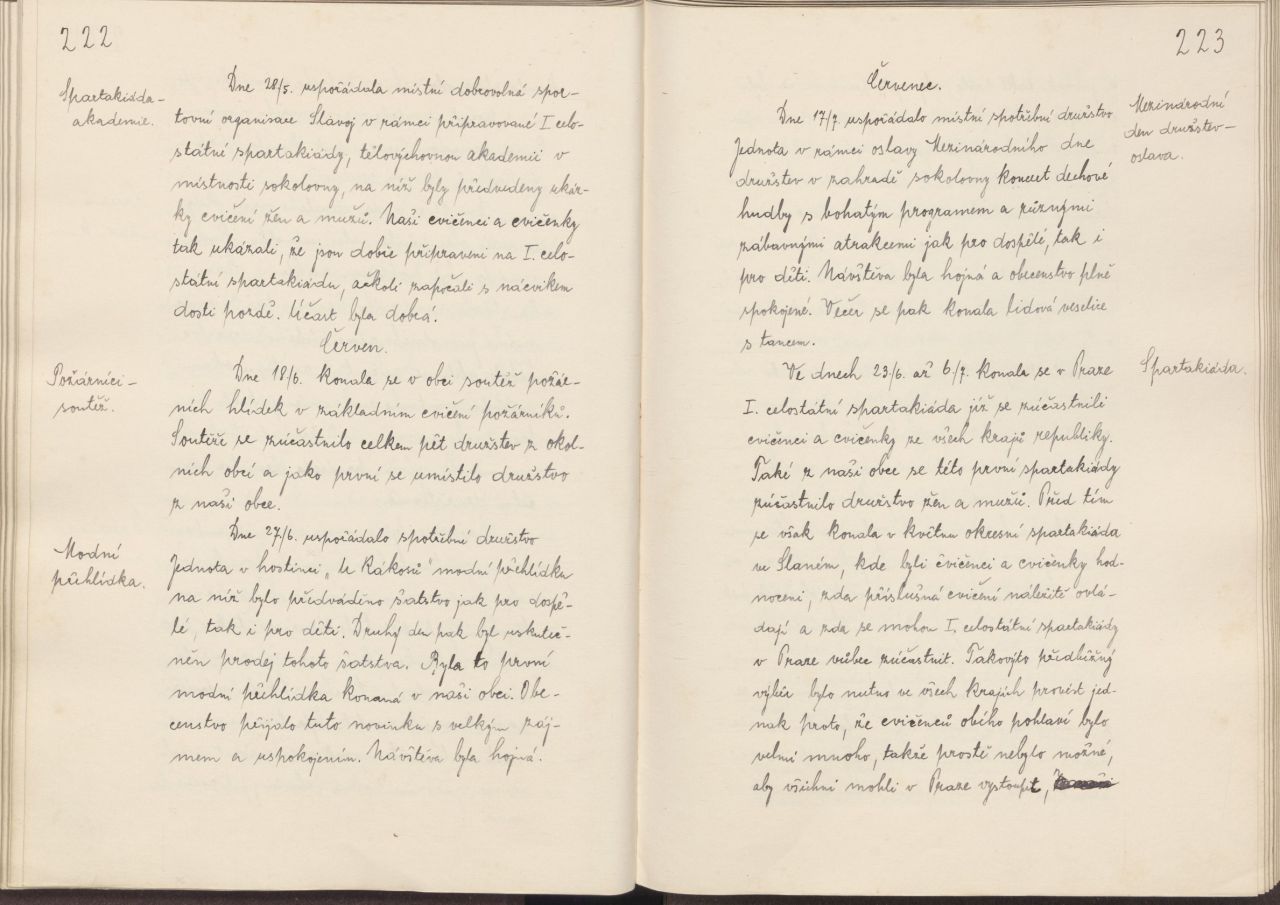 222
Spartakiáda-
akademie.
Dne 28/5. uspořádala místní dobrovolná spor-
tovní organisace Slavoj v rámci připravované I. celo-
státní spartakiády, tělovýchovnou akademii v
místnosti sokolovny, na níž byly předvedeny ukáz-
ky cvičení žen a mužů. Naši cvičenci a cvičenky
tak ukázali, že jsou dobře připraveni na I. celo-
státní spartakiádu, ačkoli započali s nácvikem
dosti pozdě. Účast byla dobrá.
Červen.
Požárníci-
soutěž.
Dne 18/6. konala se v obci soutěž požár-
ních hlídek v základním cvičení požárníků.
Soutěže se zúčastnilo celkem pět družstev z okol-
ních obcí a jako první se umístilo družstvo
z naší obce.
Modní
přehlídka.
Dne 27/6. uspořádalo spotřební družstvo
Jednota v hostinci „U Rákosů" modní přehlídku
na níž bylo předváděno šatstvo jak pro dospě-
lé, tak i pro děti. Druhý den pak byl uskuteč-
něn prodej tohoto šatstva. Byla to první
modní přehlídka konaná v naší obci. Obe-
censtvo přijalo tuto novinku s velkým záj-
mem a uspokojením. Návštěva byla hojná.
223
Červenec.
Mezinárodní
den družstev-
oslava.
Dne 17/7. uspořádalo místní spotřební družstvo
Jednota v rámci oslavy Mezinárodního dne
družstev v zahradě sokolovny koncert dechové
hudby s bohatým programem a různými
zábavnými atrakcemi jak pro dospělé, tak i
pro děti. Návštěva byla hojná a obecenstvo plně
spokojené. Večer se pak konala lidová veselice
s tancem.
Spartakiáda.
Ve dnech 23./6. až 6/7. konala se v Praze
I. celostátní spartakiáda jíž se zúčastnili
cvičenci a cvičenky ze všech krajů republiky.
Také z naší obce se této první spartakiády
zúčastnilo družstvo žen a mužů. Před tím
se však konala v květnu okresní spartakiáda
ve Slaném, kde byli cvičenci a cvičenky hod-
noceni, zda příslušná cvičení náležitě ovlá-
dají a zda se mohou I. celostátní spartakiády
v Praze vůbec zúčastnit. Takovýto předběžný
výběr bylo nutno ve všech krajích provést jed-
nak proto, že cvičenců obého pohlaví bylo
velmi mnoho, takže prostě nebylo možné,
aby všichni mohli v Praze vystoupit,